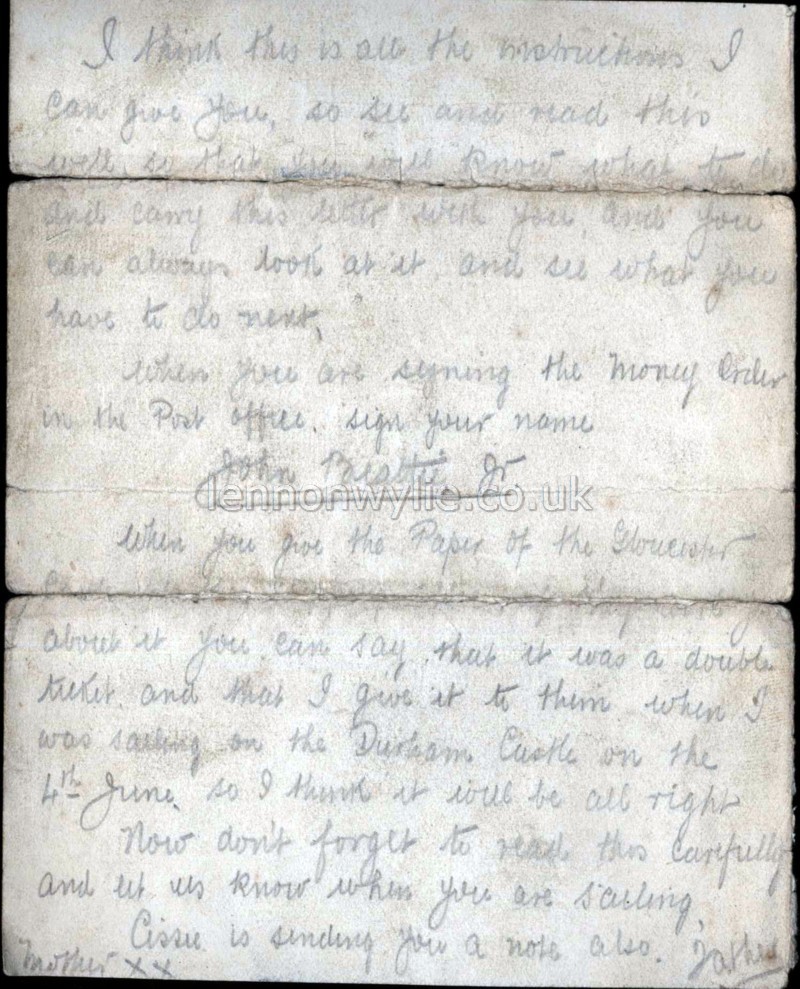 I think this is all the instructions I
can give you, so see and read this
well so that you will know what to do
and carry this letter with you and you
can always look at it, and see what you
have to do next,
When you are signing the Money Order
in the Post office, sign your name
John Beattie Jr
lennonwylie.co.uk
When you give the Paper of the Gloucester
about it you can say that it was a double
ticket and that I give it to them when I
was sailing on the Durham Castle on the
4th June, so I think it will be all right
Now don't forget to read this carefully
and let us know when you are sailing,
Cissie is sending you a note also. Father
Mother xx